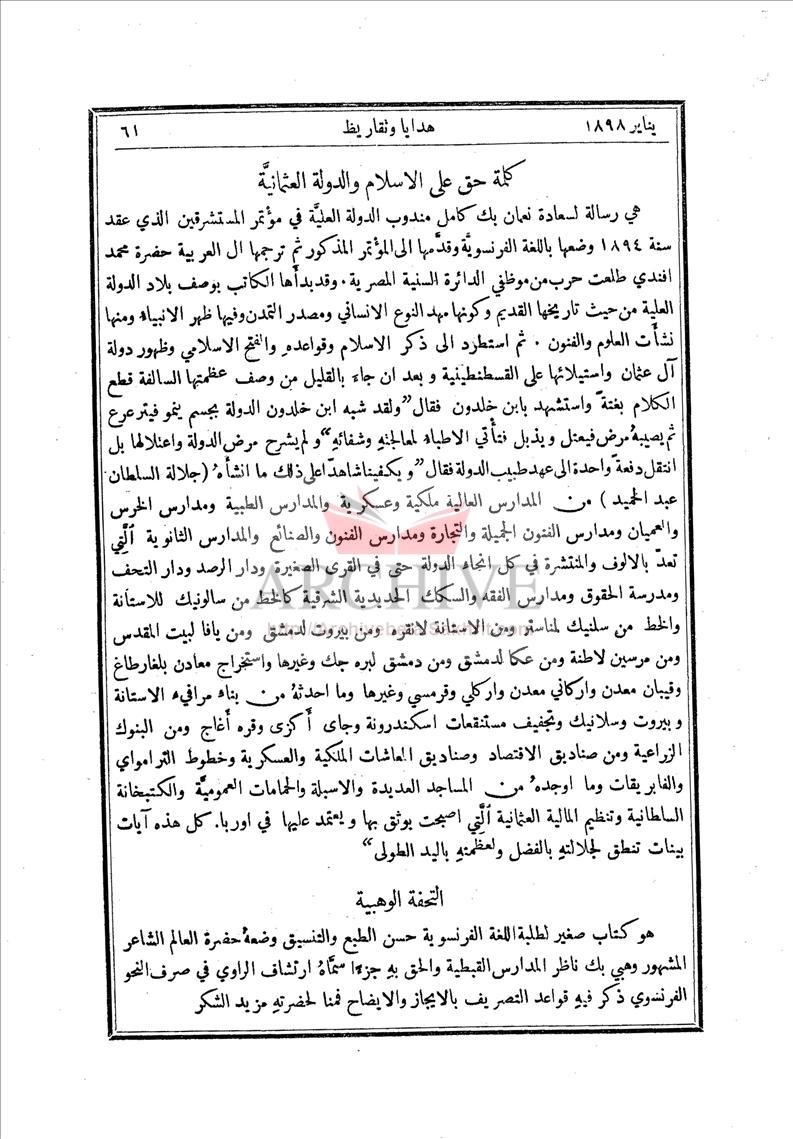 يناير ١٨٩٨ هدايا وتقاريظ ٦١
كلمة حق على الاسلام والدولة العثمانيَّة
هي رسالة لسعادة نعمان بك كامل مندوب الدولة العليَّة في مؤتمر المستشرقين الذي عقد
سنة ١٨٩٤ وضعها باللغة الفرنسويَّة وقدَّمها الى المؤتمر المذكور ثم ترجمها ال العربية حضرة محمد
افندي طلعت حرب من موظفي الدائرة السنية المصرية. وقد بدأها الكاتب بوصف بلاد الدولة
العلية من حيث تاريخها القديم وكونها مهد النوع الانساني ومصدر التمدن وفيها ظهر الانبياء ومنها
نشأت العلوم والفنون. ثم استطرد الى ذكر الاسلام وقواعدهِ والفتح الاسلامي وظهور دولة
آل عثمان واستيلائها على القسطنطينية وبعد ان جاء بالقليل من وصف عظمتها السالفة قطع
الكلام بغتةً واستشهد بابن خلدون فقال "ولقد شبه ابن خلدون الدولة بجسم ينمو فيترعرع
ثم يصيبهُ مرض فيعتل ويذبل فتأتي الاطباء لمعالجتهِ وشفائهِ" ولم يشرح مرض الدولة واعتلالها بل
انتقل دفعةً واحدة الى عهد طبيب الدولة فقال "ويكفينا شاهداً على ذلك ما انشأهُ (جلالة السلطان
عبد الحميد) من المدارس العالية ملكية وعسكرية والمدارس الطبية ومدارس الخرس
والعميان ومدارس الفنون الجميلة والتجارة ومدارس الفنون والصنائع والمدارس الثانوية الَّتي
تعدّ بالالوف والمنتشرة في كل انحاء الدولة حتى في القرى الصغيرة ودار الرصد ودار التحف
ومدرسة الحقوق ومدارس الفقه والسكك الحديدية الشرقية كالخط من سالونيك للاستانة
والخط من سلنيك لمناستر ومن الاستانة لانقره ومن بيروت لدمشق ومن يافا لبيت المقدس
ومن مرسين لاطنة ومن عكا لدمشق ومن دمشق لبره جك وغيرها واستخراج معادن بلغارطاغ
وقيبان معدن واركاني معدن واركلي وقرمسي وغيرها وما احدثهُ من بناء مرافيء الاستانة
وبيروت وسلانيك وتجفيف مستنقعات اسكندرونة وجاى أكزى وقره أغاج ومن البنوك
الزراعية ومن صناديق الاقتصاد وصناديق المعاشات الملكية والعسكرية وخطوط الترامواي
والفابريقات وما اوجدهُ من المساجد العديدة والاسبلة والحمامات العموميَّة والكتبخانة
السلطانية وتنظيم المالية العثمانية الَّتي اصبحت يوثق بها ويعتمد عليها في اوربا. كل هذه آيات
بينات تنطق لجلالتهِ بالفضل ولعظمتهِ باليد الطولى"
التحفة الوهبية
هو كتاب صغير لطلبة اللغة الفرنسوية حسن الطبع والتنسيق وضعهُ حضرة العالم الشاعر
المشهور وهبي بك ناظر المدارس القبطية والحق بهِ جزءا سمَّاهُ ارتشاف الراوي في صرف النحو
الفرنسوي ذكر فيهِ قواعد التصريف بالايجاز والايضاح فمنا لحضرتهِ مزيد الشكر
ARCHIVE
http://Archivebeta.Sakhrit.com